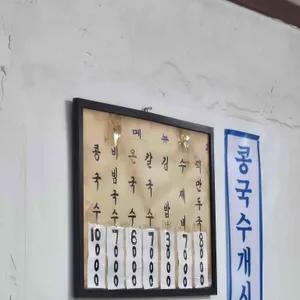 메뉴
콩국수 10000
비빔국수 7000
은국수 6000
칼국수 7000
김밥 3000
수제비 7000
떡만두국 8000
콩국수개시